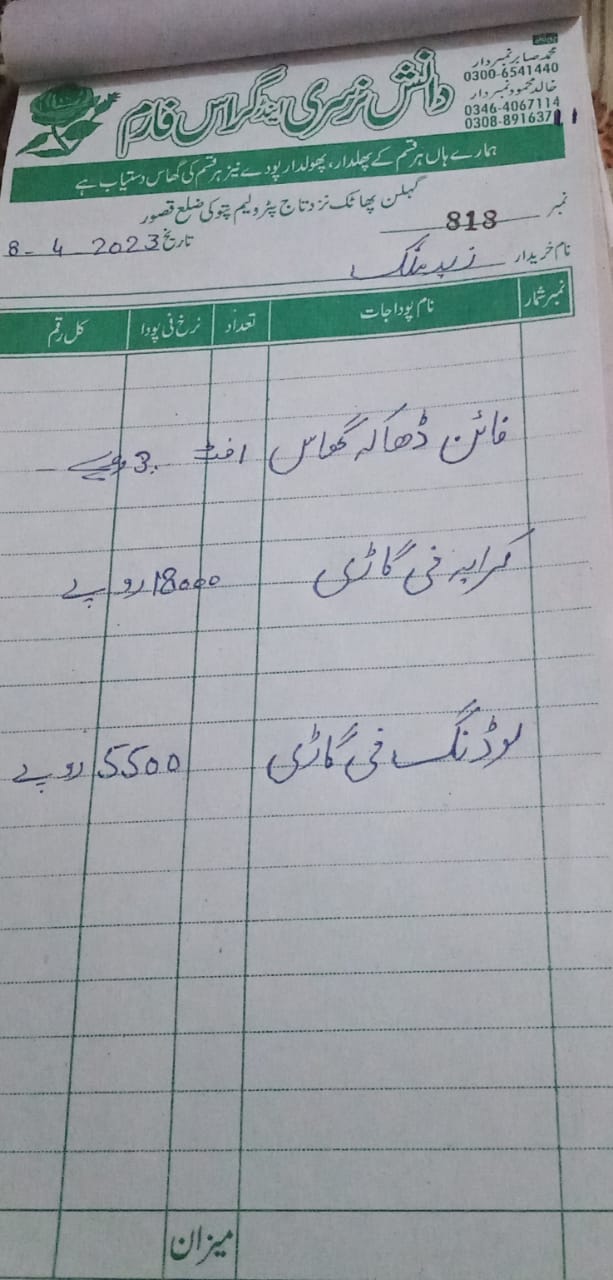 محمد صابر نمبردار
0300-6541440
خالد محمود نمبردار
0346-4067114
0308-8916371
دانش نرسری اینڈ گراس فارم
ہمارے ہاں ہر قسم کے پھلدار، پھولدار پودے نیز ہر قسم کی گھاس دستیاب ہے
گہلن پھاٹک نزد تاج پٹرولیم پتوکی ضلع قصور
نمبر 818
تاریخ 8-4-2023
نام خریدار
نمبر شمار نام پودا جات تعداد نرخ فی پودا کل رقم
فائن ڈھاکہ گھاس 1 فٹ 3 روپے
کرایہ فی گاڑی 18000 روپے
لوڈنگ فی گاڑی 5500 روپے
میزان